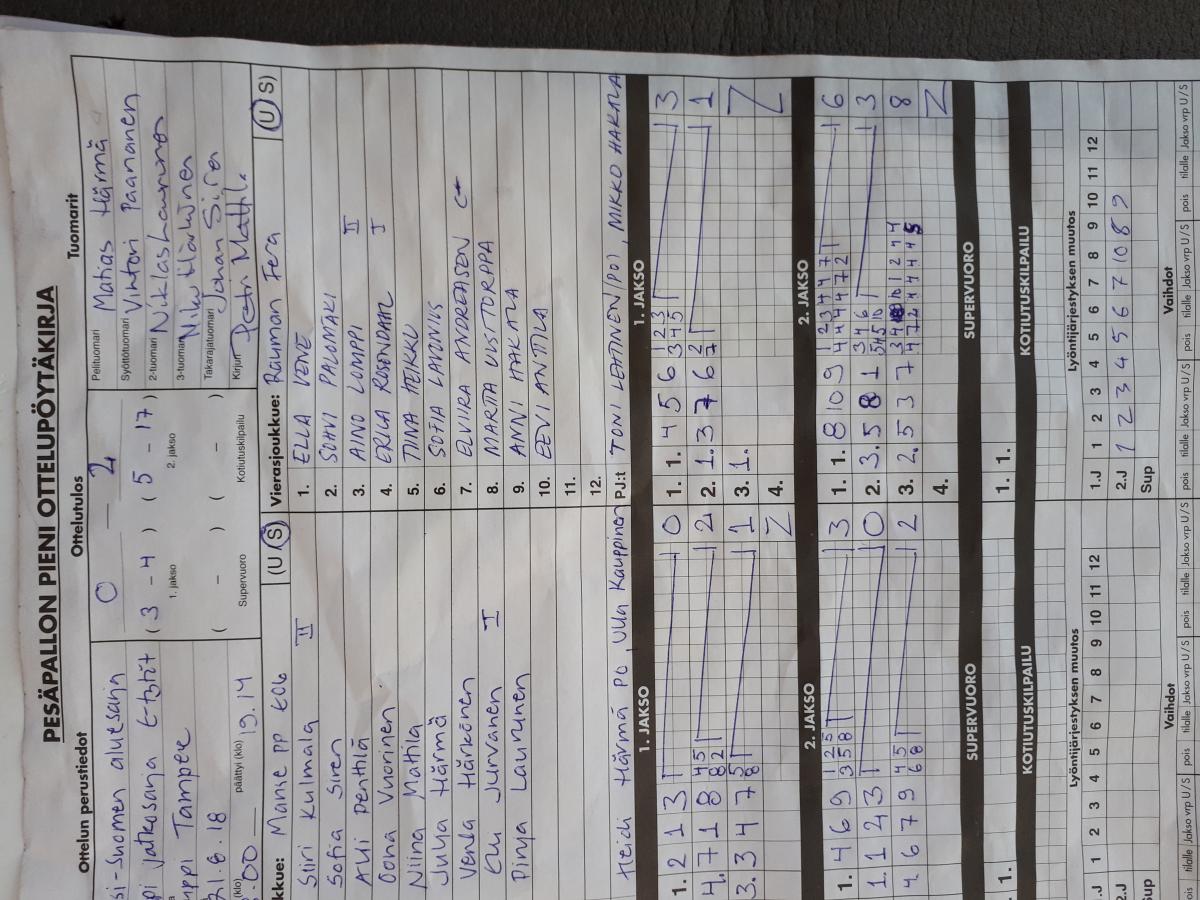 PESÄPALLON PIENI OTTELUPÖYTÄKIRJA
Ottelun perustiedot
Ottelutulos
Tuomarit
si-Suomen aluesarja
pi jatkosarja E-tytöt
Tampere
21.6.18
(klo) .00
päättyi (klo) 19.14
0 — 2
( 3 - 4 ) ( 5 - 17 )
1. jakso
2. jakso
( - ) ( - )
Supervuoro
Kotiutuskilpailu
Pelituomari Matias Härmä
Syöttötuomari Vihtori Paananen
2-tuomari Niklas
3-tuomari
Takarajatuomari Johan Siren
Kirjuri Petri Mattila
kkue: Manse PP
(U / S)
Siiri Kulmala II
Sofia Siren
Alli Penttilä
Oona Vuorinen
Niina Mattila
Julia Härmä
Venla Härkönen
Elli Junnanen I
Pinja Laurunen
Vierasjoukkue: Rauman Fera
(U / S)
1. ELLA VENE
2. SOHVI PALOMÄKI
3. AINO LUMPPI II
4. ERIKA ROSENDAHL I
5. TIINA HEIKKU
6. SOFIA LAVONIUS
7. ELVIIRA ANDREASEN C
8. MARTTA UUSITORPPA
9. ANNI HAKALA
10. EEVI ANTTILA
11.
12.
Heidi Härmä PO, Ulla Kauppinen
PJ:t TONI LEHTINEN (PO), MIKKO HAKALA
1. JAKSO
1. 2 1 3 0
4. 7 1 8 4 5 8 2 2
3. 3 4 7 5 8 1
1. JAKSO
1. 1. 4 5 6 1 2 3 3 4 5 3
2. 1. 3 7 6 2 7 1
3. 1.
4.
2. JAKSO
1. 4 6 9 1 2 5 3 5 8 3
1. 1 2 4 3 0
4 6 7 9 4 5 6 8 2
2. JAKSO
1. 1. 8 10 9 1 2 3 4 4 7 7 4 4 4 4 7 2 6
2. 3. 5 8 1 3 4 6 3
3. 2. 5 3 7 8
4.
SUPERVUORO
SUPERVUORO
1.
1. 1.
KOTIUTUSKILPAILU
KOTIUTUSKILPAILU
Lyöntijärjestyksen muutos
Lyöntijärjestyksen muutos
1.J 1 2 3 4 5 6 7 8 9 10 11 12
2.J
Sup
1.J 1 2 3 4 5 6 7 8 9 10 11 12
2.J 1 2 3 4 5 6 7 10 8 9
Sup
Vaihdot
Vaihdot
pois tilalle Jakso vrp U/S pois tilalle Jakso vrp U/S
pois tilalle Jakso vrp U/S pois tilalle Jakso vrp U/S pois tilalle Jakso vrp U/S